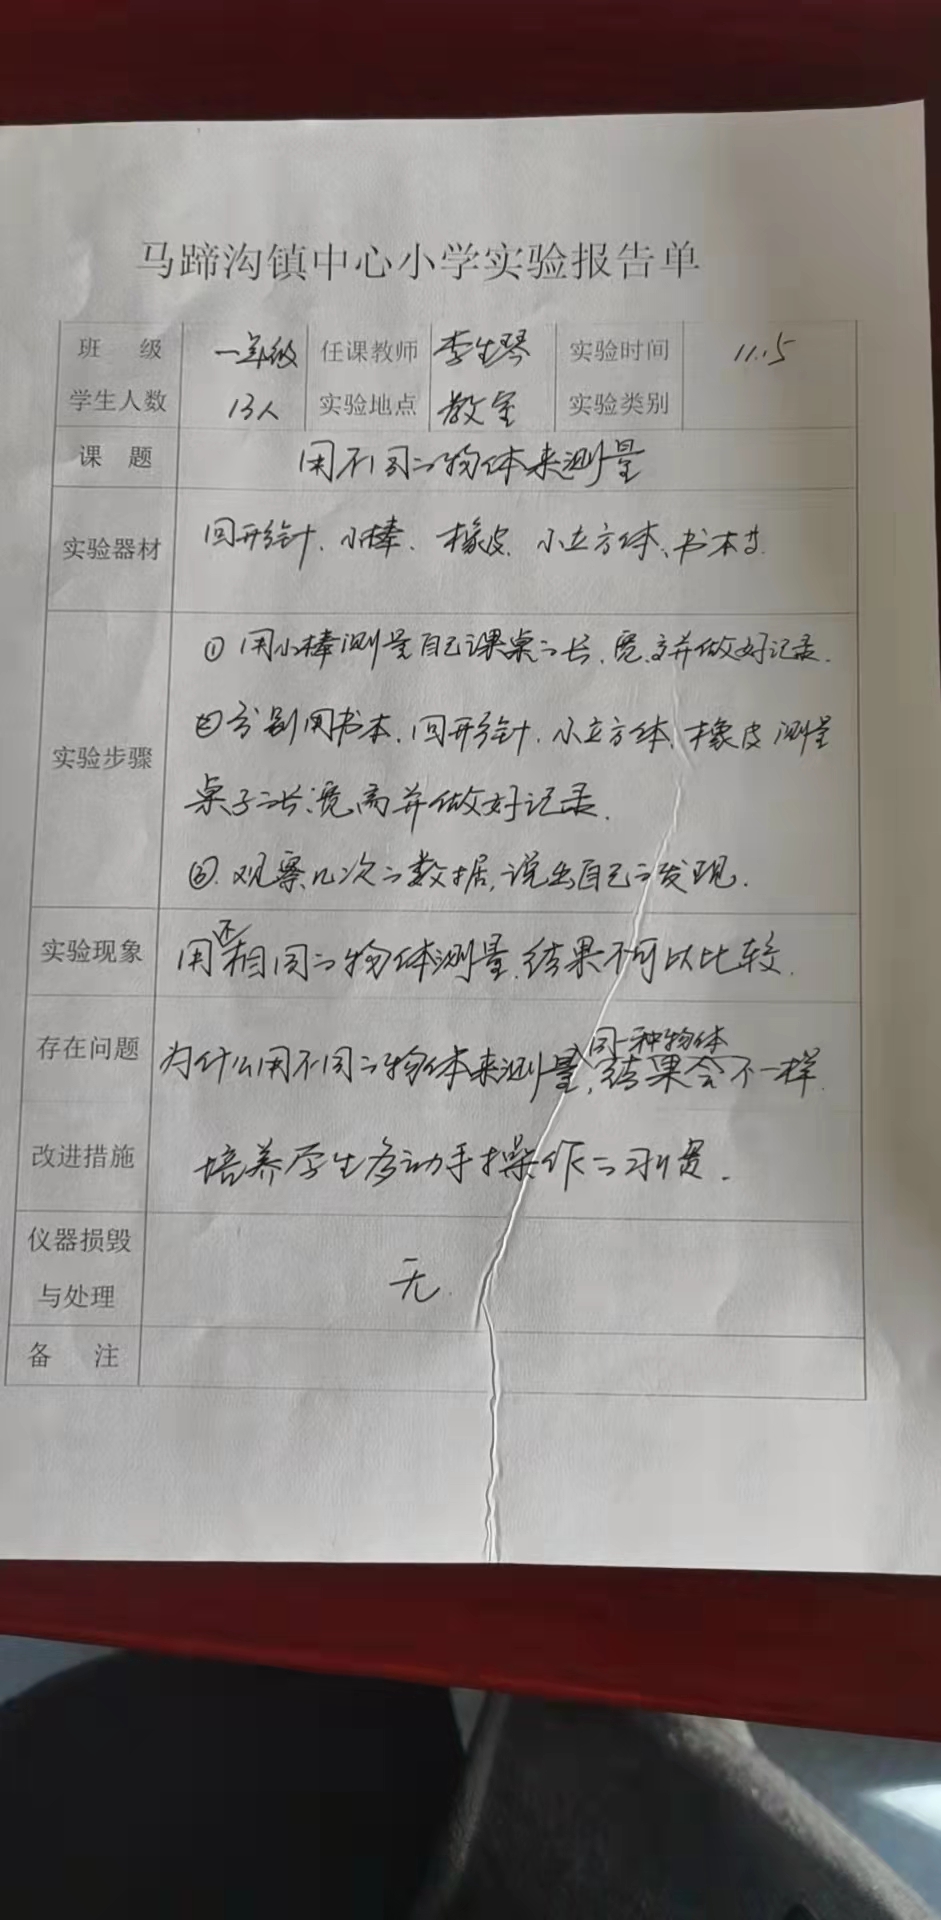 马蹄沟镇中心小学实验报告单
班 级 一年级 任课教师 李生琴 实验时间 11.15
学生人数 13人 实验地点 教室 实验类别
课 题 用不同的物体来测量
实验器材 回形针、小棒、橡皮、小立方体、书本等.
① 用小棒测量自己课桌的长、宽、高并做好记录.
② 分别用书本、回形针、小立方体、橡皮测量
实验步骤
桌子的长、宽、高并做好记录.
③. 观察几次的数据,说出自己的发现.
实验现象 用不相同的物体测量,结果不可以比较.
存在问题 为什么用不同的物体来测量同一种物体,结果会不一样.
改进措施 培养学生多动手操作的习惯.
仪器损毁
与处理 无.
备 注